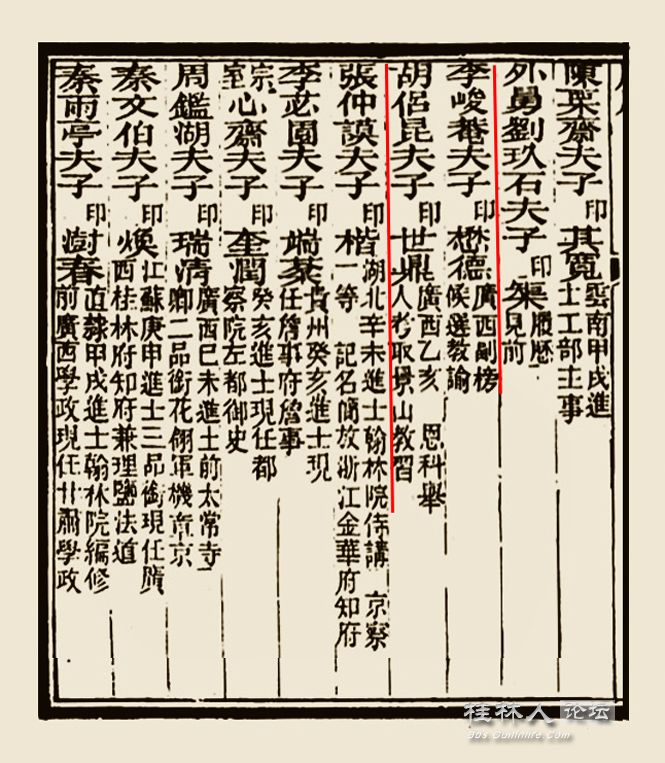 陳琛齋夫子印其寬雲南甲戌進士工部主事
外舅劉玖石夫子印榘履歷見前
李峻菴夫子印懋德廣西副榜候選教諭
胡侶昆夫子印世鼎廣西乙亥 恩科舉人考取景山教習
張仲謨夫子印楷湖北辛未進士翰林院侍講 京察一等 記名簡放浙江金華府知府
李苾園夫子印端棻貴州癸亥進士現任詹事府詹事
宗室心齋夫子印奎潤癸亥進士現任都察院左都御史
周鑑湖夫子印瑞清廣西己未進士前太常寺卿二品銜花翎軍機章京
秦文伯夫子印煥江蘇庚申進士三品銜現任廣西桂林府知府兼理鹽法道
秦雨亭夫子印澍春直隸甲戌進士翰林院編修前廣西學政現任甘肅學政
桂林人论坛
bbs.Guilinlife.Com